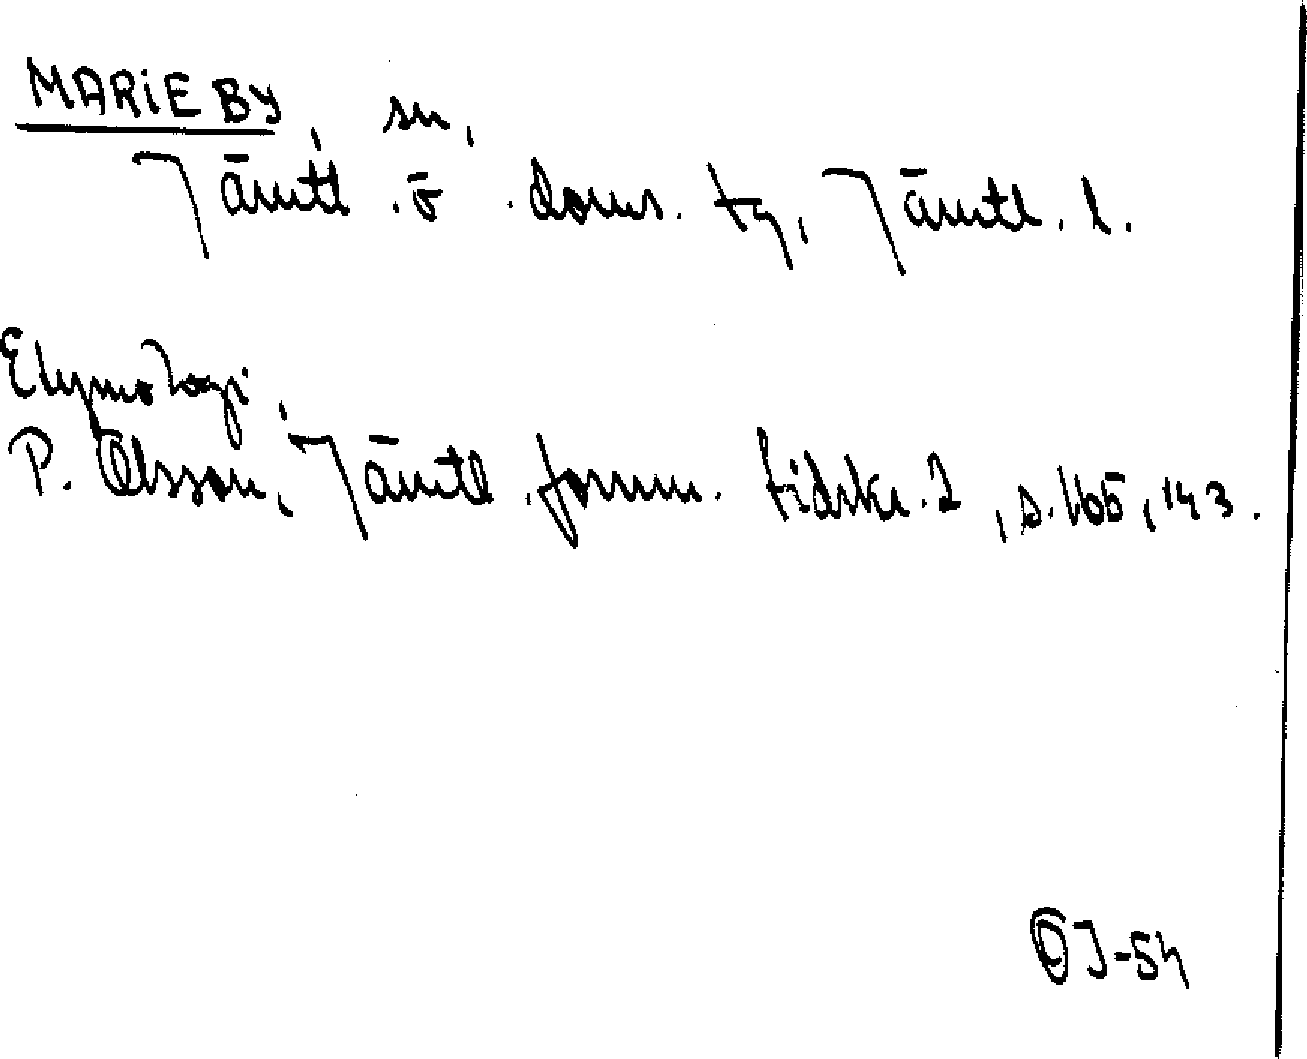 MARIEBY, sn,
Jämtl. ö. doms. tg, Jämtl. l.
Etymologi.
P. Olsson, Jämtl. fornm. tidskr. 2, s. 165, 143.
OJ-54